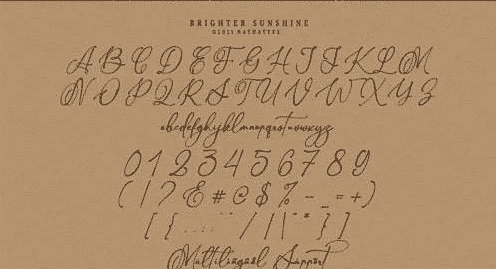 BRIGHTER SUNSHINE
ABCDEFGHIJKLM
NOPQRSTUVWXYZ
abcdefghijklmnopqrstuvwxyz
0123456789
(!?&#@$%-_=+)
[{.,:;'"/|\"*}]
Multilingual Support